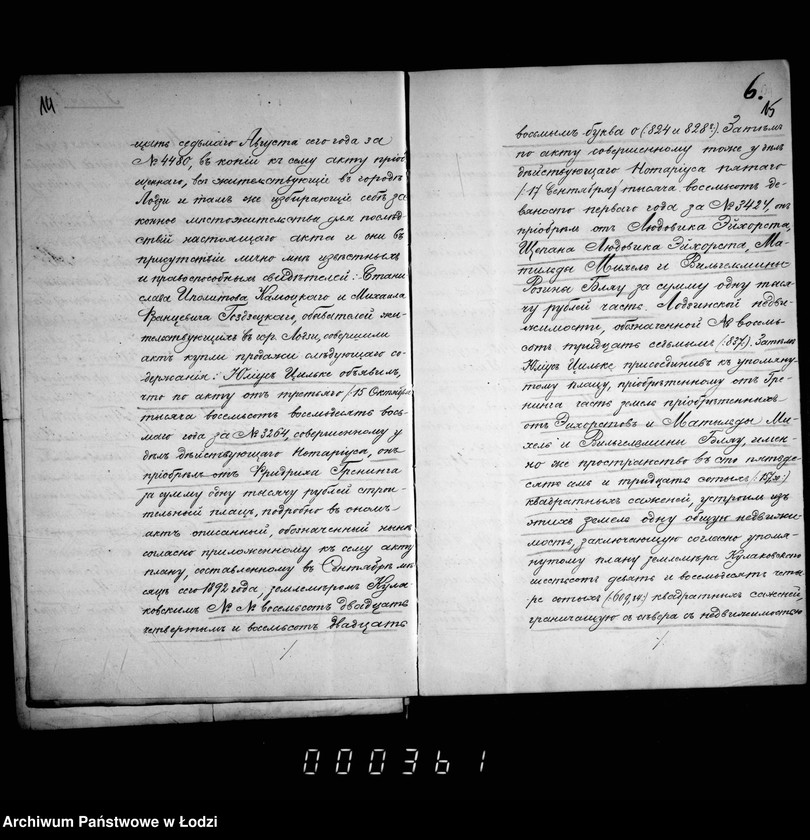 14
щать седьмаго Августа сего года за
№ 4480, въ копіи къ сему акту пріоб
щеннаго, всѣ жительствующіе въ городѣ
Лодзи и тамъ же избирающіе себѣ за
конное мѣстожительство для послѣд
ствій настоящаго акта и они въ
присутствіи лично мнѣ извѣстныхъ
и правоспособныхъ свидѣтелей: Стани
слава Иполитова Камоцкаго и Михаила
Францевича Гоздецкаго, обывателей жи
тельствующихъ въ гор. Лодзи, совершили
актъ купли продажи слѣдующаго со
держанія: Юліусъ Цильке объявилъ,
что по акту отъ третьяго /15 Октября
тысяча восемьсотъ восемьдесятъ вось
маго года за № 3264, совершенному у
дѣйствующаго Нотаріуса, онъ
пріобрѣлъ отъ Фридриха Гренинга
за сумму одну тысячу рублей строи-
тельный плацъ, подробно въ ономъ
актѣ описанный, обозначенный нынѣ
согласно приложенному къ сему акту
плану, составленному въ Сентябрѣ мѣ
сяцѣ сего 1892 года, землемѣромъ Кула
ковскимъ № № восемьсотъ двадцать
четвертымъ и восемьсотъ двадцать
·/.
6.
15
восьмымъ буква о (824 и 828). Затѣмъ
по акту совершенному тоже у
дѣйствующаго Нотаріуса пятаго
/17 Сентября/ тысяча восемьсотъ де-
вяносто перваго года за № 3427, онъ
пріобрѣлъ отъ Людовика Эйхорста,
Щепана Людовика Эйхорста, Ма-
тильды Михель и Вильгельмины
Розины Бляу за сумму одну тыся
чу рублей часть Лодзинской недви-
жимости, обозначенной № восемь-
сотъ тридцать седьмымъ (837). Затѣмъ
Юліусъ Цильке присоединивъ къ упомяну
тому плацу, пріобрѣтенному отъ Гре-
нинга часть земли пріобрѣтенныхъ
отъ Эйхорстовъ и Матильды Ми-
хель и Вильгельмины Бляу, имен-
но же пространство въ сто пятьде-
сятъ и тридцать сотыхъ
квадратныхъ саженей, устроилъ изъ
этихъ земель одну общую недвижи-
мость, заключающую согласно упомя-
нутому плану землемѣра Кулаковскаго
шестьсотъ девять и восемьдесятъ четы
ре сотыхъ (609,84) квадратныхъ саженей
граничащую съ сѣвера съ недвижимостью
·/.
000361
Archiwum Państwowe w Łodzi